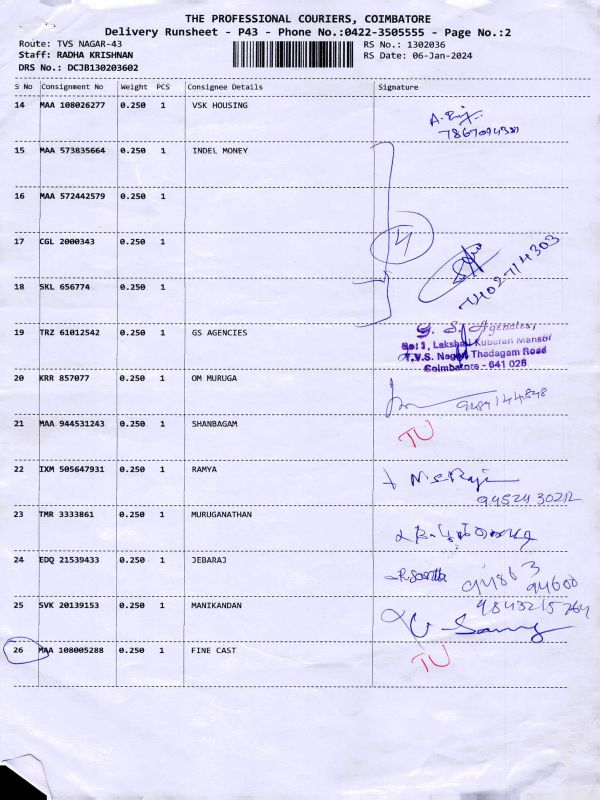 THE PROFESSIONAL COURIERS, COIMBATORE
Delivery Runsheet - P43 - Phone No.:0422-3505555 - Page No.:2
Route: TVS NAGAR-43 RS No.: 1302036
Staff: RADHA KRISHNAN RS Date: 06-Jan-2024
DRS No.: DCJB130203602
S No Consignment No Weight PCS Consignee Details Signature
14 MAA 108026277 0.250 1 VSK HOUSING
15 MAA 573835664 0.250 1 INDEL MONEY
16 MAA 572442579 0.250 1
17 CGL 2000343 0.250 1 4
18 SKL 656774 0.250 1 7402714303
19 TRZ 61012542 0.250 1 GS AGENCIES G. S. Agencies,
No: 1, Lakshmi Kuberan Mansol
T.V.S. Nagar Thadagam Road
Coimbatore - 641 025
20 KRR 857077 0.250 1 OM MURUGA
21 MAA 944531243 0.250 1 SHANBAGAM TU
22 IXM 505647931 0.250 1 RAMYA
23 TMR 3333861 0.250 1 MURUGANATHAN
24 EDQ 21539433 0.250 1 JEBARAJ 94863 94600
25 SVK 20139153 0.250 1 MANIKANDAN 9843215764
26 MAA 108005288 0.250 1 FINE CAST TU